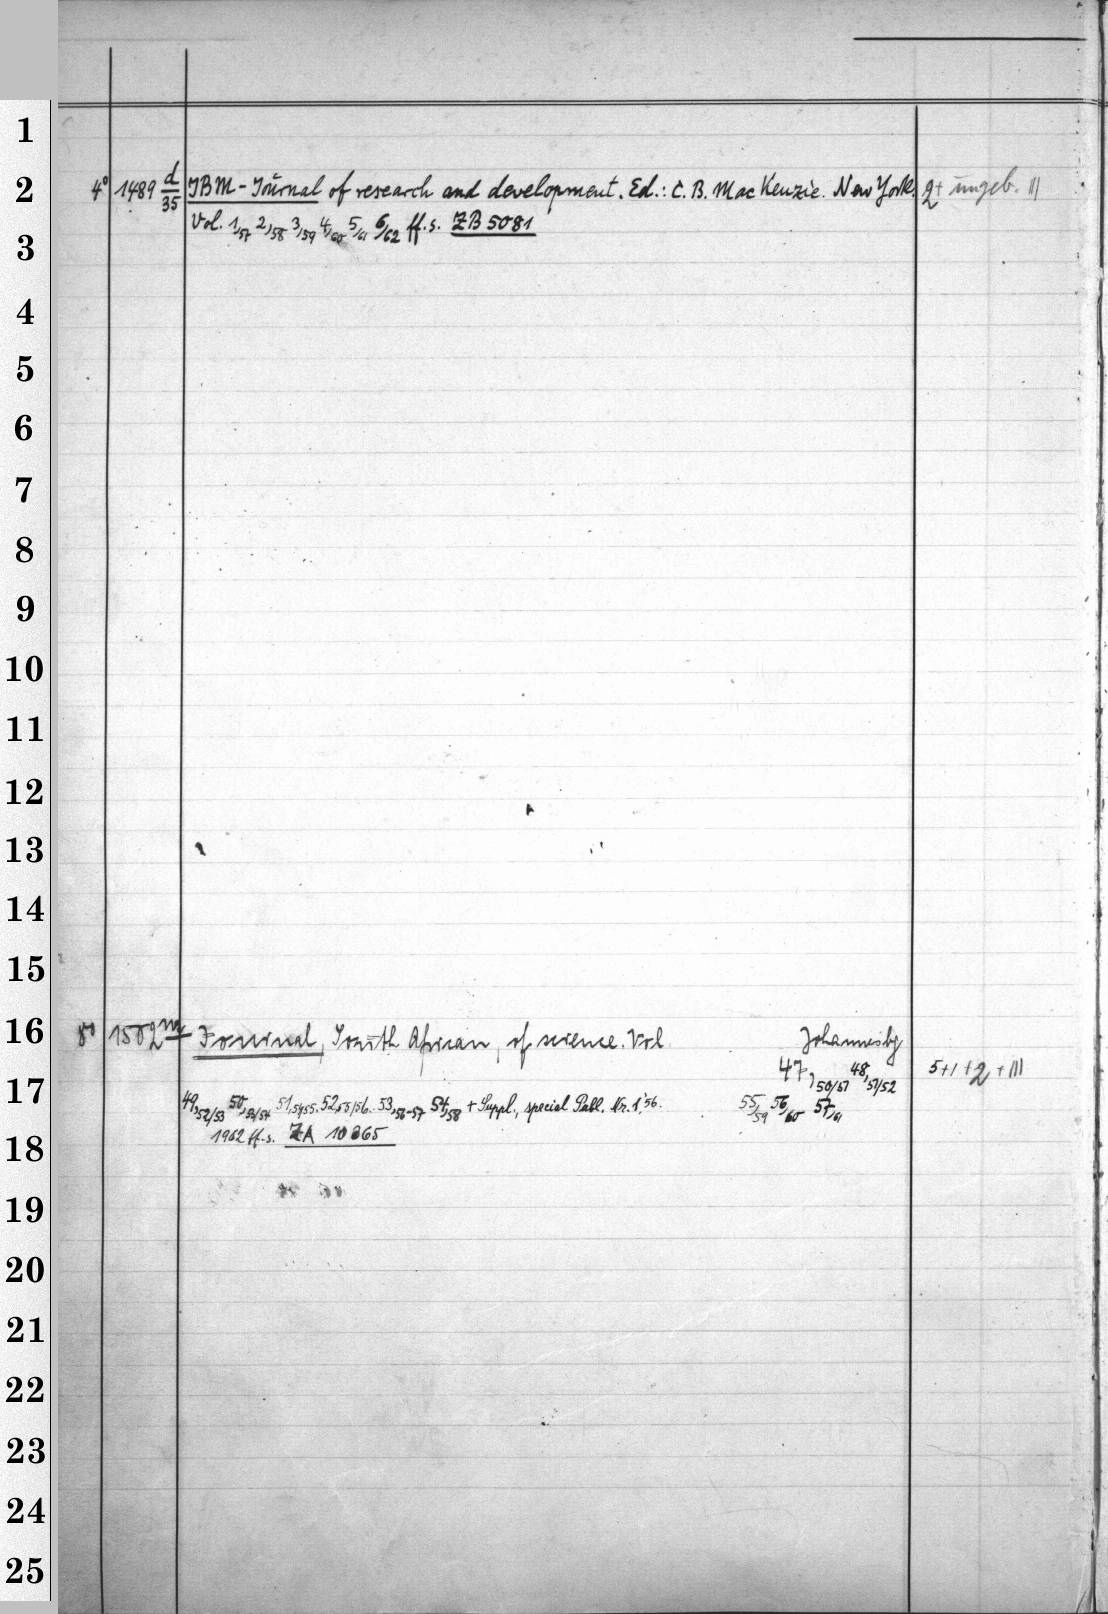 1
2
4° 1489 d/35 IBM-Journal of research and development. Ed.: C. B. Mac Kenzie. New York. 2+ ungeb. III
Vol. 1,57 2,58 3,59 4,60 5,61 6/62 ff. s. ZB 5081
3
4
5
6
7
8
9
10
11
12
13
14
15
16
8° 1582 m Journal, South African, of science. Vol. Johannesbg
47,50/51 48,51/52 5+1+2+III
17
49,52/53 50,53/54 51,54/55. 52,55/56. 53,56-57 54,58 + Suppl., special Publ. Nr. 1,'56. 55,59 56/60 57,61
1962 ff. s. ZA 10865
18
19
20
21
22
23
24
25